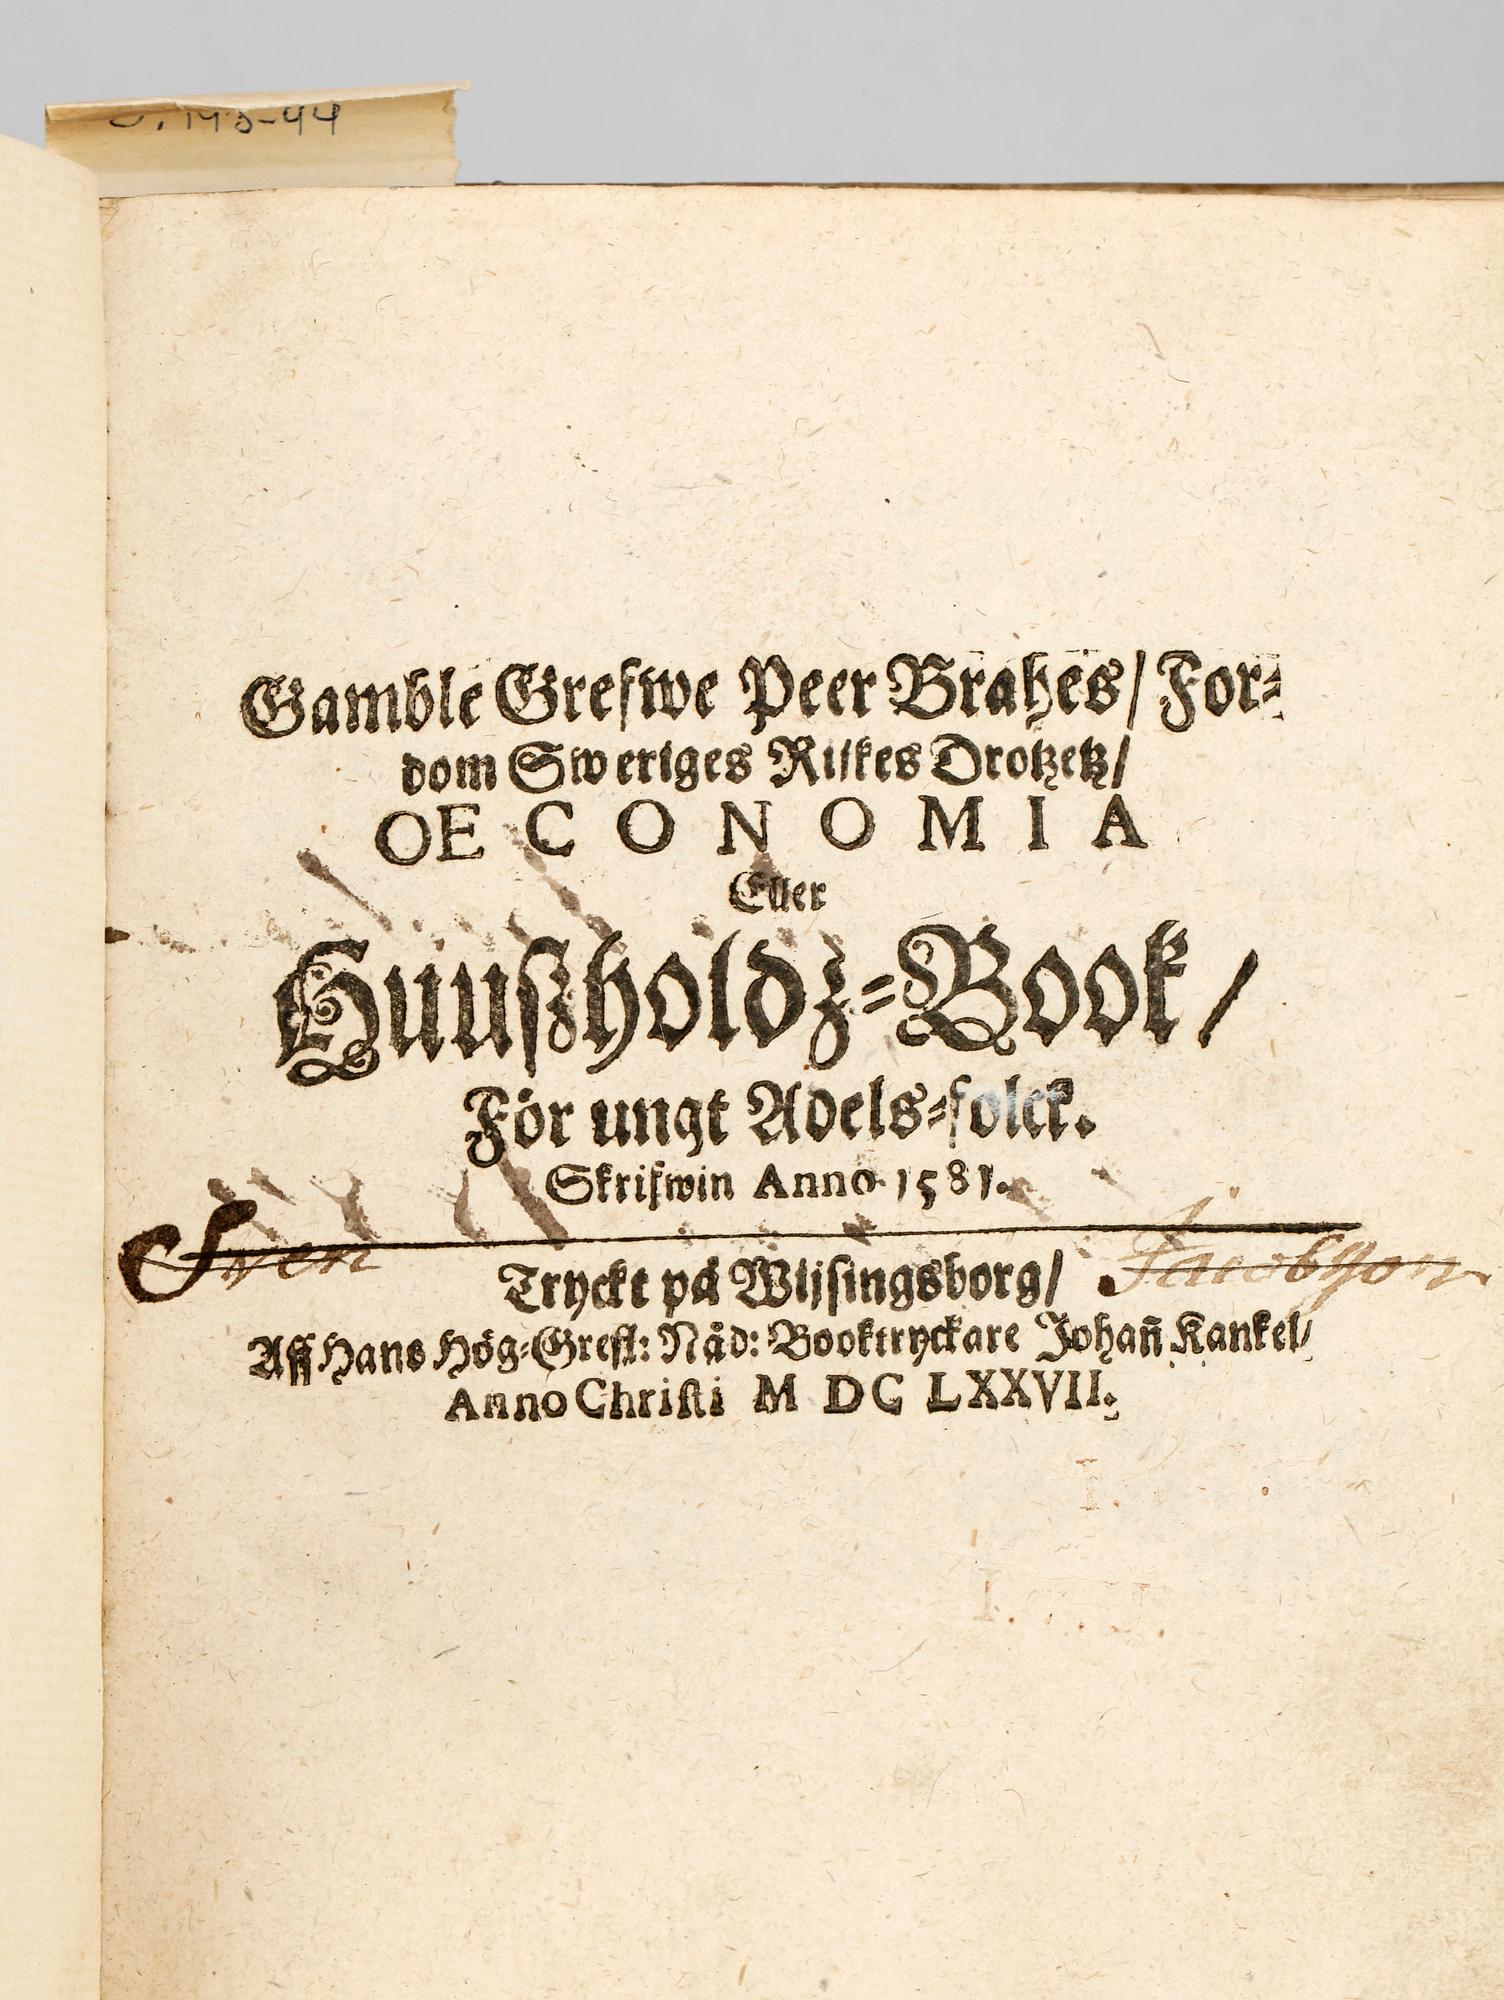 143-44
Gamble Grefwe Peer Brahes/ For-
dom Sweriges Rijkes Drotzetz/
OECONOMIA
Eller
Huußholdz-Book/
För ungt Adels-folck.
Skrifwin Anno 1581.
Sven Jacobson
Tryckt på Wijsingsborg/
Aff Hans Hög-Grefl: Nåd: Booktryckare Johan̄ Kankel/
Anno Christi M DC LXXVII.